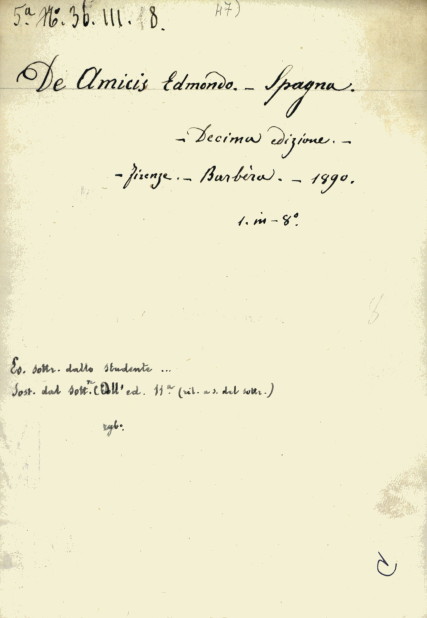 5.ª 36. III. 8. 47)
De Amicis Edmondo. – Spagna.
– Decima edizione. –
– Firenze. – Barbèra. – 1890.
1. in – 8º.
Es. sottr. dallo studente ...
Sost. dal sott.re coll' ed. 11.ª (ril. a s. del sottr.)